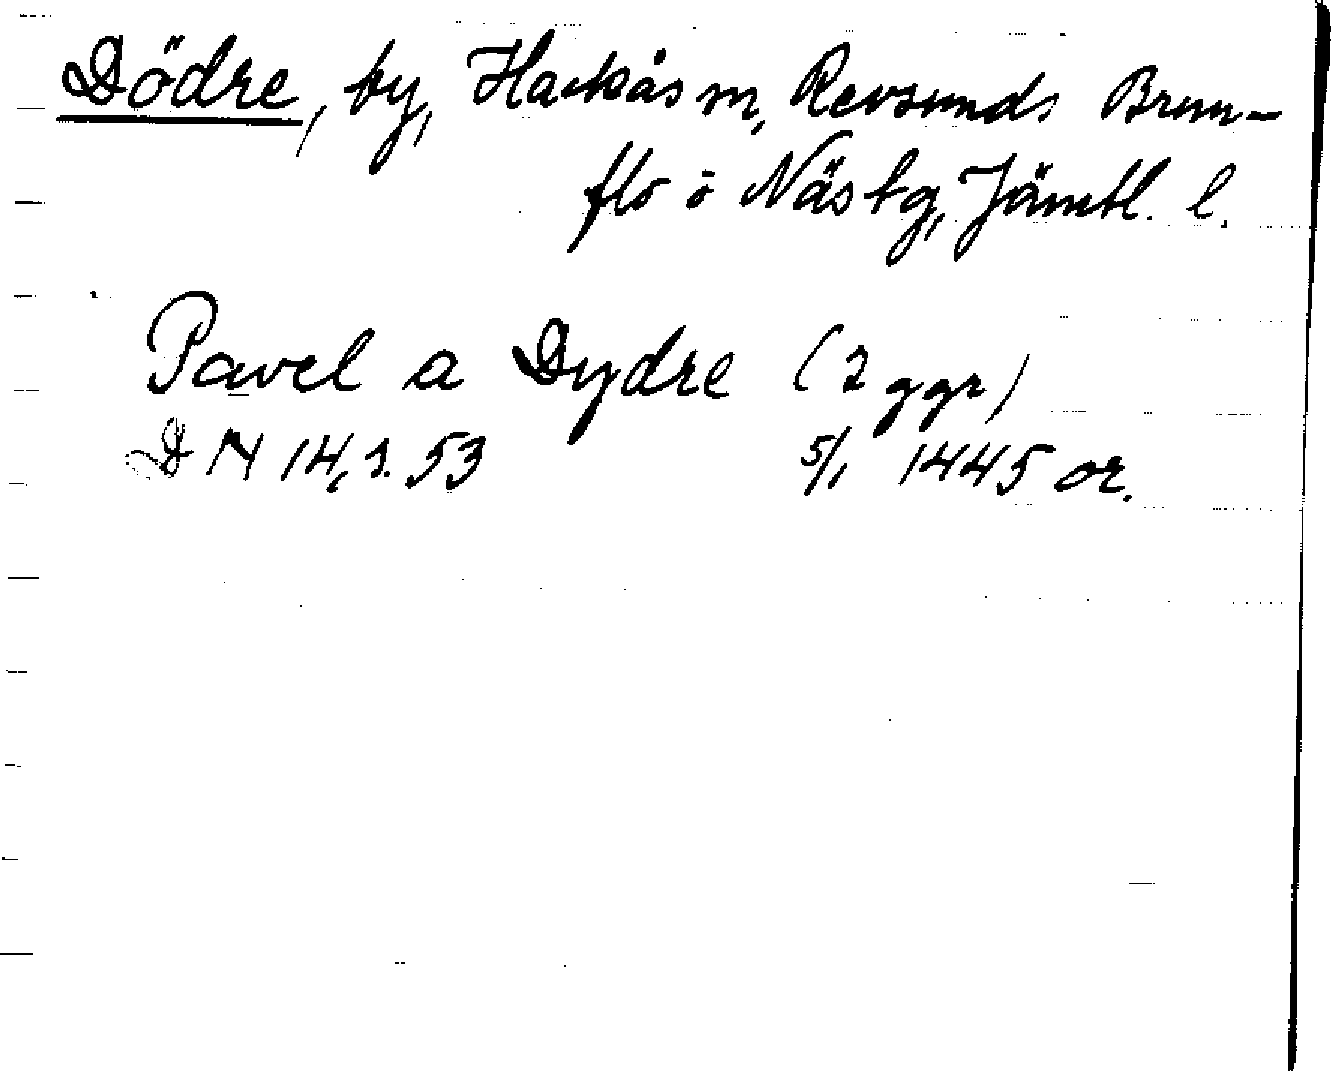 Dödre, by, Hackås sn, Revsunds Brun-
flo o Näs tg, Jämtl. l.
Pavel a Dydre (2 ggr)
DN 14, s. 53 5/1 1445 or.